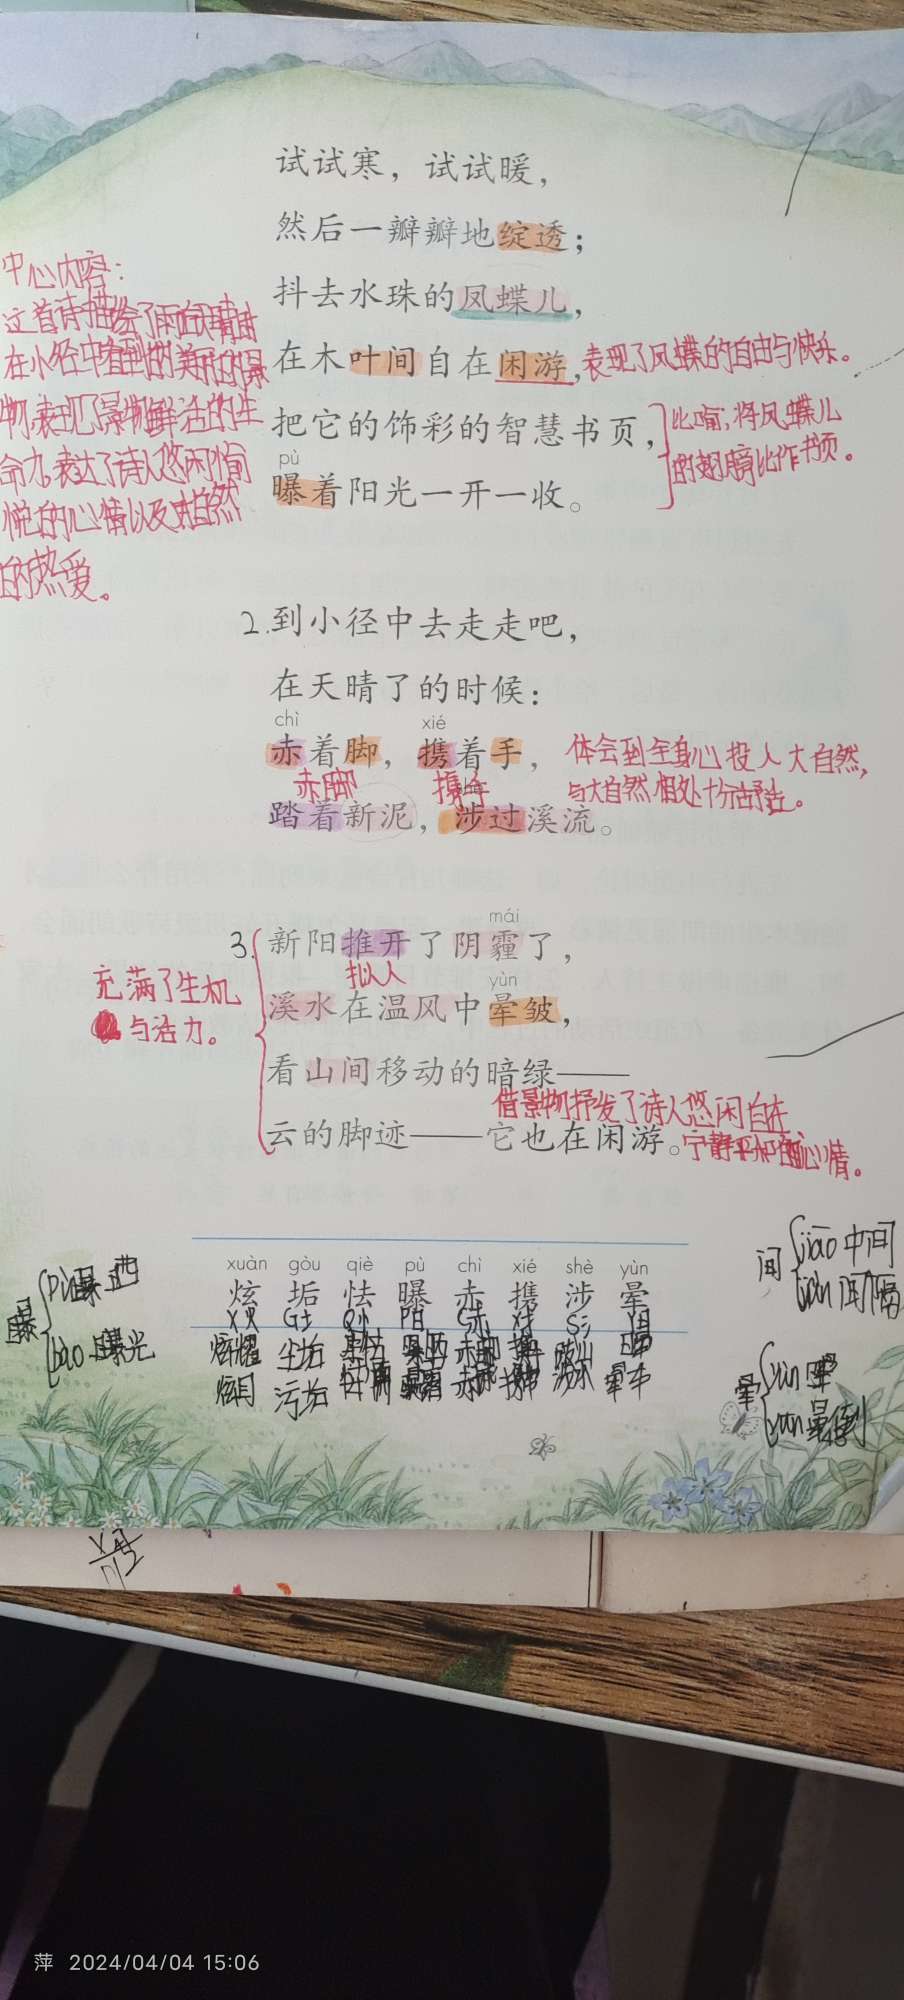 试试寒，试试暖，
然后一瓣瓣地绽透；
抖去水珠的凤蝶儿，
在木叶间自在闲游，
表现了凤蝶的自由与快乐。
把它的饰彩的智慧书页，
pù
曝着阳光一开一收。
比喻，将凤蝶儿
的翅膀比作书页。
中心内容：
这首诗描绘了雨后天晴时
在小径中看到的美丽的景
物，表现了景物鲜活的生
命力，表达了诗人悠闲愉
悦的心情以及对自然
的热爱。
2.到小径中去走走吧，
在天晴了的时候：
chì xié
赤着脚，携着手，
赤脚 携手
踏着新泥，涉过溪流。
体会到全身心投入大自然，
与大自然相处十分舒适。
mái
3.新阳推开了阴霾了，
拟人
yùn
溪水在温风中晕皱，
看山间移动的暗绿——
云的脚迹——它也在闲游。
充满了生机
与活力。
借景物抒发了诗人悠闲自在、
宁静平和的心情。
xuàn gòu qiè pù chì xié shè yùn
炫 垢 怯 曝 赤 携 涉 晕
炫耀 尘垢
炫目 污垢 晕车
曝 pù 曝晒
bào 曝光
间 jiān 中间
jiàn 间隔
晕 yùn
yūn 晕倒
萍 2024/04/04 15:06